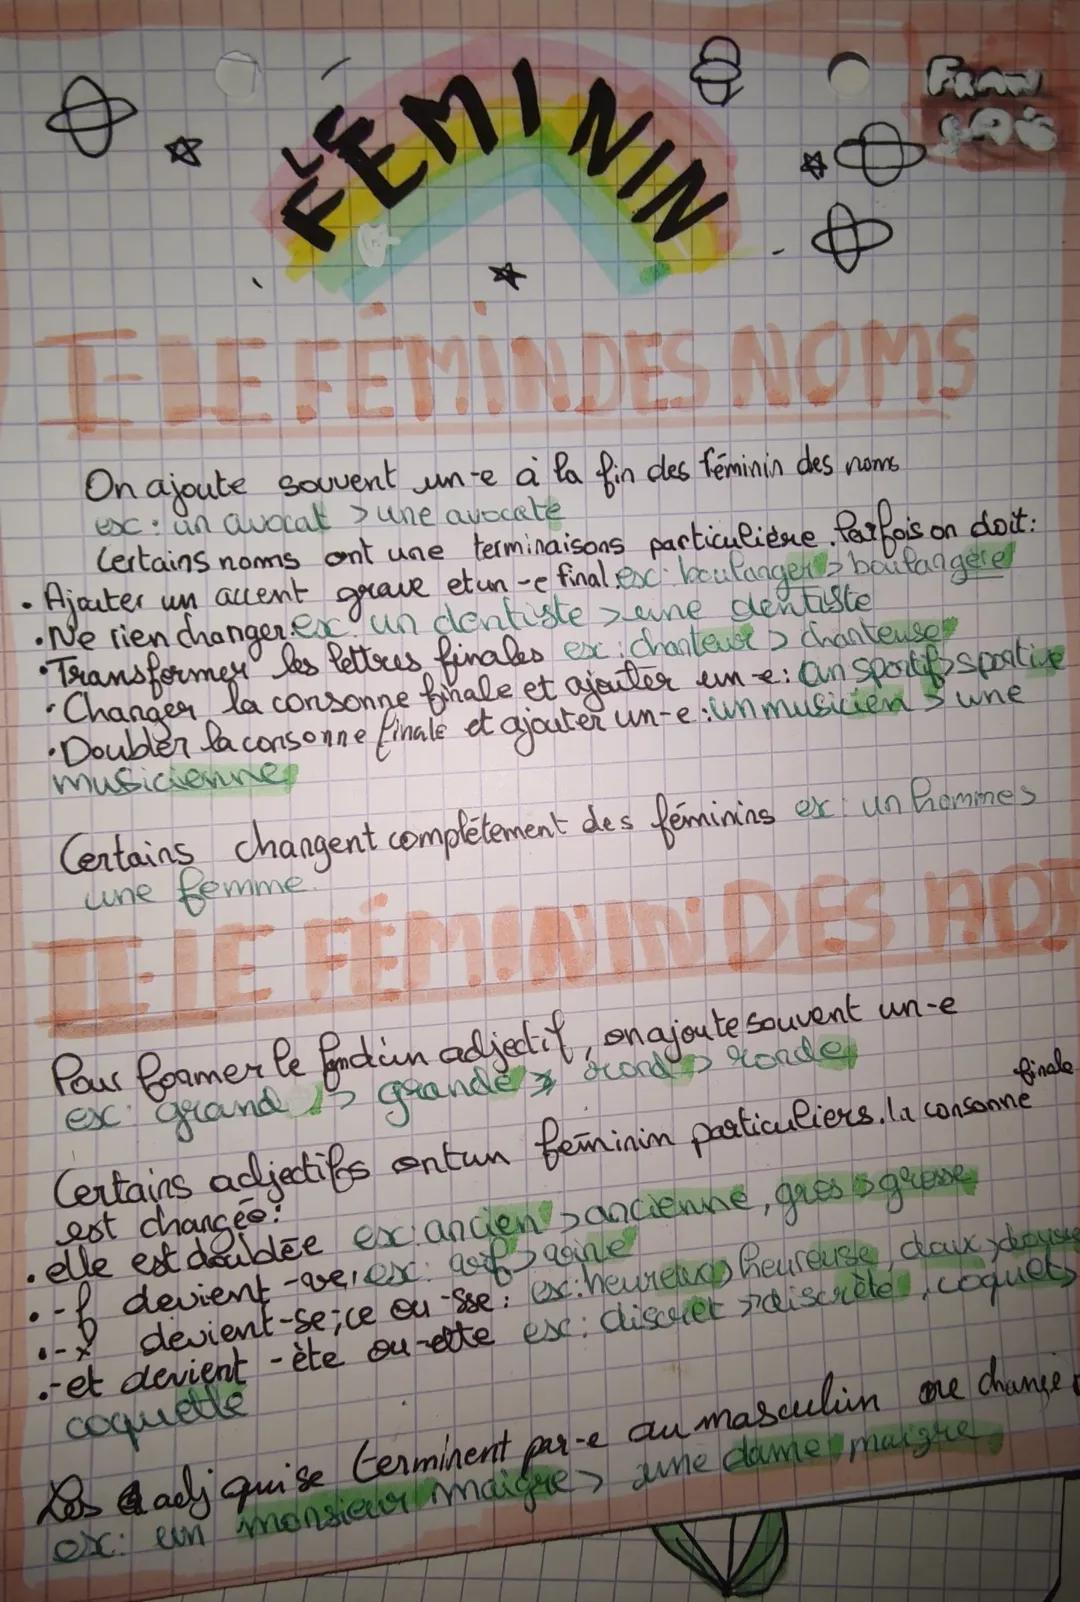 FRAN
ÇAIS
LE
FÉMININ
I-LE FÉMIN DES NOMS
On ajoute souvent un -e à la fin des féminin des noms
ex : un avocat > une avocate
Certains noms ont une terminaisons particulière. Parfois on doit:
• Ajouter un accent grave et un -e final. ex: boulanger > boulangère
• Ne rien changer. ex: un dentiste > une dentiste
• Transformer les lettres finales ex : chanteur > chanteuse
• Changer la consonne finale et ajouter un -e: un sportif > sportive
• Doubler la consonne finale et ajouter un -e : un musicien > une
musicienne
Certains changent complétement des féminins ex : un hommes
une femme.
II-LE FÉMININ DES ADJ
Pour former le d'un adjectif, on ajoute souvent un -e
ex: grand > grande > rond > ronde
Certains adjectifs ont un féminin particuliers. la consonne finale
est changée:
• elle est doublée ex: ancien > ancienne, gros > grosse
• -f devient -ve, ex:
• -x devient -se; ce ou -sse : ex: heureux > heureuse, doux > douce
• -et devient -ète ou -ette ex : discret > discrète, coquet >
coquette
Les adj qui se terminent par -e au masculin ne change
ex: un monsieur maigre > une dame maigre